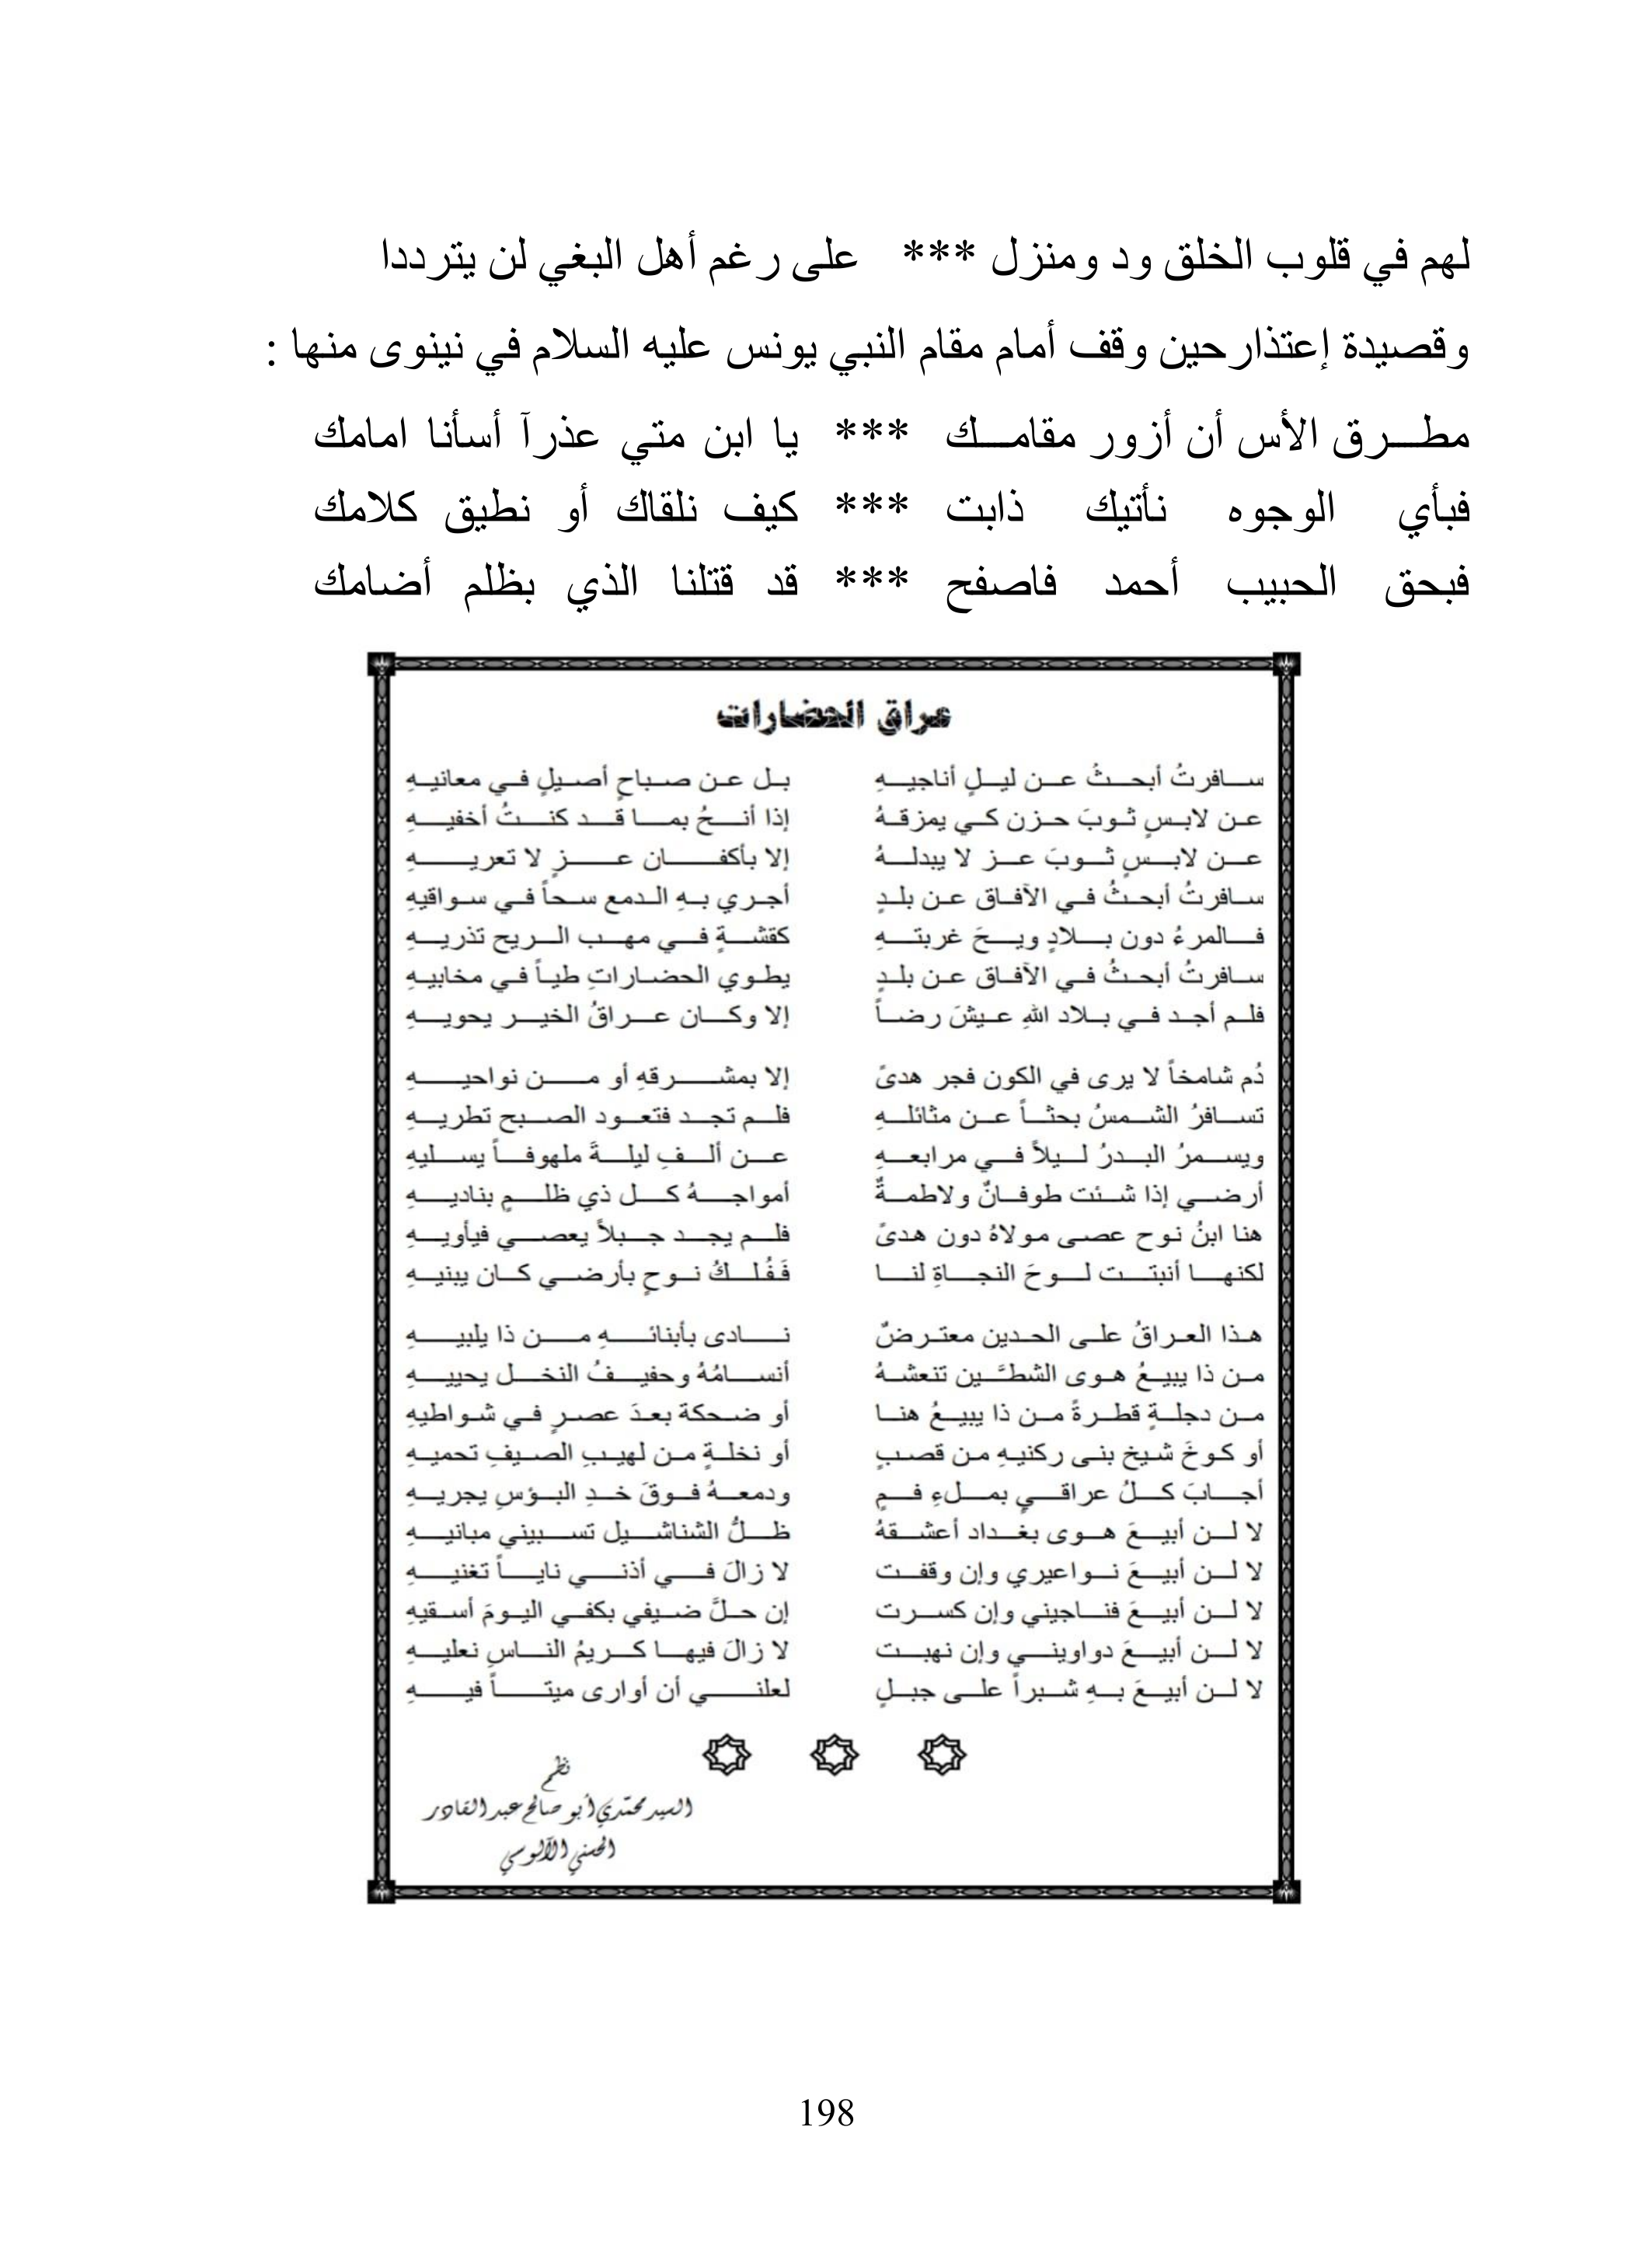 لهم في قلوب الخلق ود ومنزل *** على رغم أهل البغي لن يترددا
وقصيدة إعتذارحين وقف أمام مقام النبي يونس عليه السلام في نينوى منها :
مطرق الأس أن أزور مقامك *** يا ابن متي عذرآ أسأنا امامك
فبأي الوجوه نأتيك ذابت *** كيف نلقاك أو نطيق كلامك
فبحق الحبيب أحمد فاصفح *** قد قتلنا الذي بظلم أضامك
عراق الحضارات
سافرتُ أبحثُ عن ليلٍ أناجيهِ بل عن صباحٍ أصيلٍ في معانيهِ
عن لابسٍ ثوبَ حزن كي يمزقهُ إذا أنحُ بما قد كنتُ أخفيهِ
عن لابسٍ ثوبَ عز لا يبدلهُ إلا بأكفان عزٍ لا تعريهِ
سافرتُ أبحثُ في الآفاق عن بلدٍ أجري بهِ الدمع سحاً في سواقيهِ
فالمرءُ دون بلادٍ ويحَ غربتهِ كقشةٍ في مهب الريح تذريهِ
سافرتُ أبحثُ في الآفاق عن بلدٍ يطوي الحضاراتِ طياً في مخابيهِ
فلم أجد في بلاد اللهِ عيشَ رضاً إلا وكان عراقُ الخير يحويهِ
دُم شامخاً لا يرى في الكون فجر هدىً إلا بمشرقهِ أو من نواحيهِ
تسافرُ الشمسُ بحثاً عن مثائلهِ فلم تجد فتعود الصبح تطريهِ
ويسمرُ البدرُ ليلاً في مرابعهِ عن ألفِ ليلةَ ملهوفاً يسليهِ
أرضي إذا شئت طوفانٌ ولاطمةٌ أمواجهُ كل ذي ظلمٍ بناديهِ
هنا ابنُ نوح عصى مولاهُ دون هدىً فلم يجد جبلاً يعصي فيأويهِ
لكنها أنبتت لوحَ النجاةِ لنا فَفُلكُ نوحٍ بأرضي كان يبنيهِ
هذا العراقُ على الحدين معترضٌ نادى بأبنائهِ من ذا يلبيهِ
من ذا يبيعُ هوى الشطَّين تنعشهُ أنسامُهُ وحفيفُ النخل يحييهِ
من دجلةٍ قطرةً من ذا يبيعُ هنا أو ضحكة بعدَ عصرٍ في شواطيهِ
أو كوخَ شيخ بنى ركنيهِ من قصبٍ أو نخلةٍ من لهيبِ الصيفِ تحميهِ
أجابَ كلُ عراقيٍ بملءِ فمٍ ودمعهُ فوقَ خدِ البؤسِ يجريهِ
لا لن أبيعَ هوى بغداد أعشقهُ ظلُّ الشناشيل تسبيني مبانيهِ
لا لن أبيعَ نواعيري وإن وقفت لا زالَ في أذني ناياً تغنيهِ
لا لن أبيعَ فناجيني وإن كسرت إن حلَّ ضيفي بكفي اليومَ أسقيهِ
لا لن أبيعَ دواويني وإن نهبت لا زالَ فيها كريمُ الناسِ نعليهِ
لا لن أبيعَ بهِ شبراً على جبلٍ لعلني أن أوارى ميتاً فيهِ
نظم
السيد محمدي أبو صالح عبد القادر
الحسني الآلوسي
198